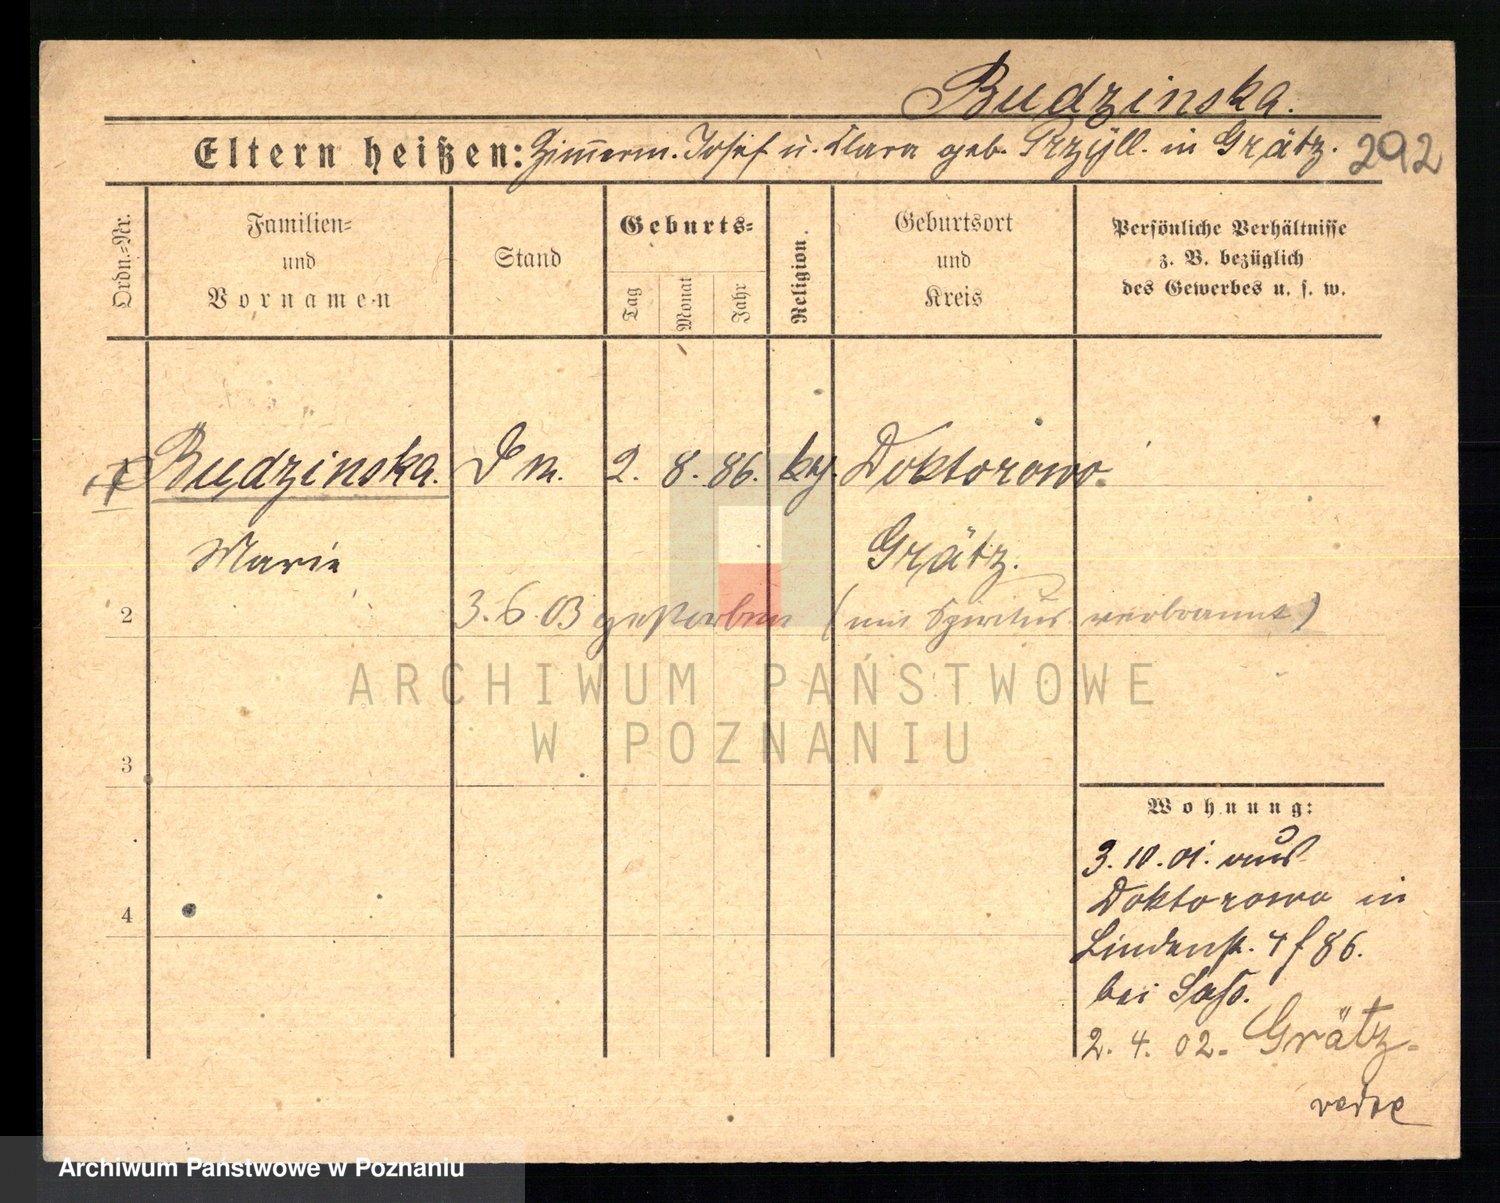 Budzinska.
Eltern heißen: Zimmerm. Josef u. Clara geb. Przyll. in Grätz. 292
Ordn.-Nr.
Familien-
und
Vornamen
Stand
Geburts-
Tag
Monat
Jahr
Religion.
Geburtsort
und
Kreis
Persönliche Verhältnisse
z. B. bezüglich
des Gewerbes u. s. w.
Budzinska. D m. 2. 8. 86. Doktorowo.
Marie Grätz.
2 3.6.03 gestorben (mit Spiritus verbrannt)
ARCHIWUM PAŃSTWOWE
W POZNANIU
3
Wohnung:
3.10.01. aus
Doktorowo in
4
Lindenstr. 86.
bei
2. 4. 02. Grätz.
Archiwum Państwowe w Poznaniu